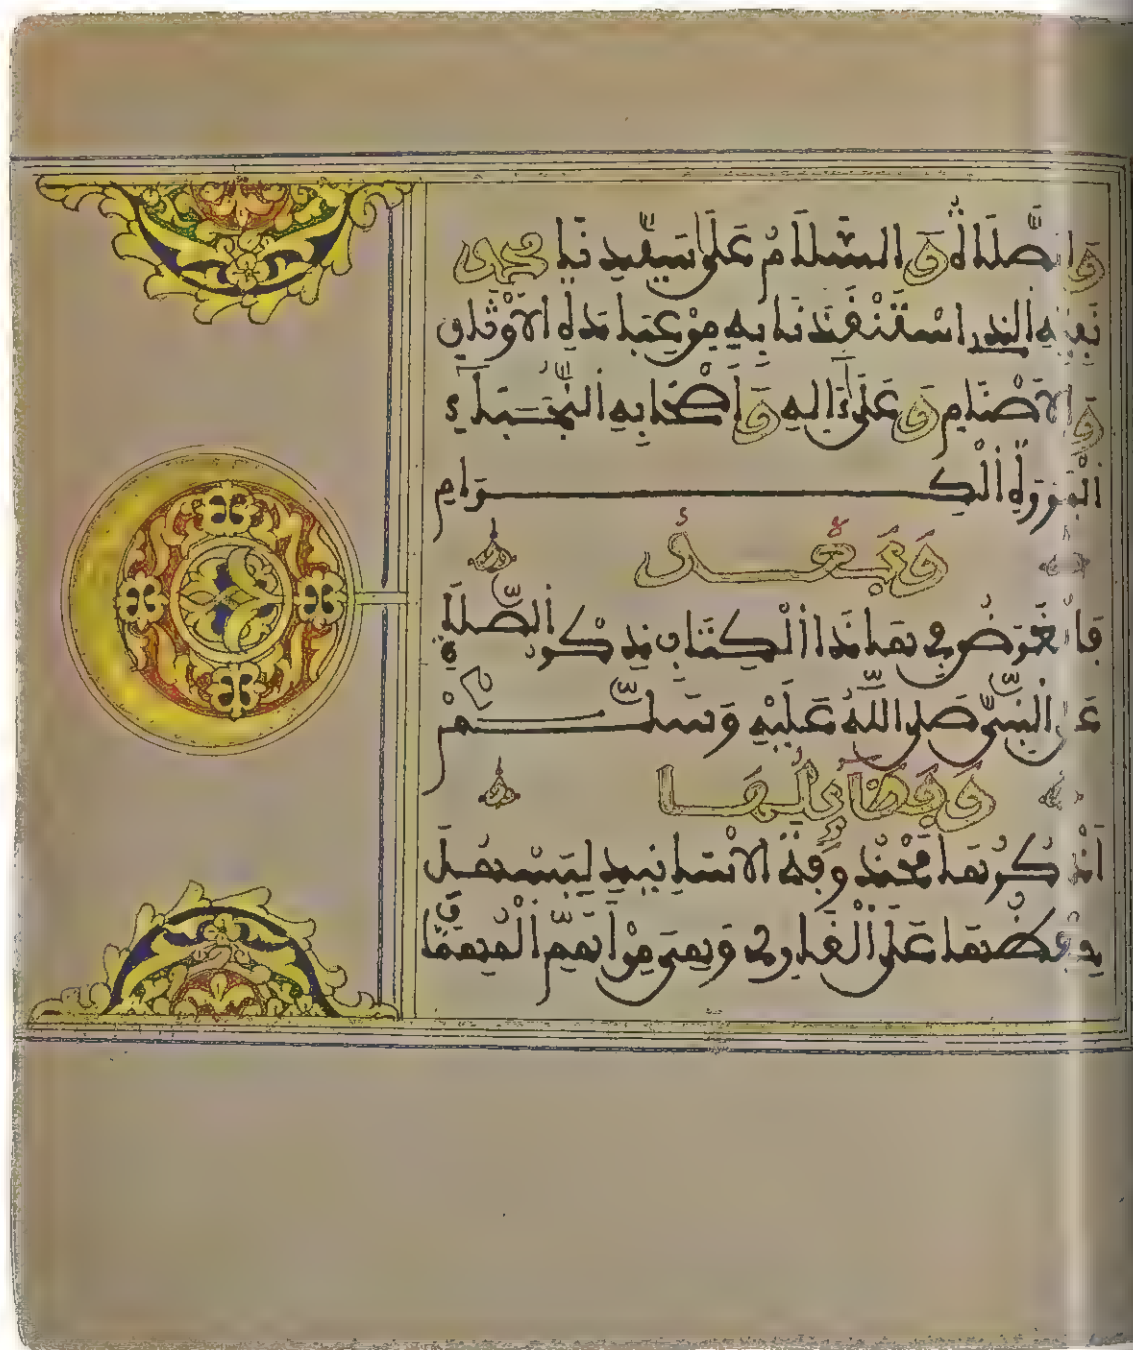 وَالصَّلَاةُ وَالسَّلَامُ عَلَى سَيِّدِنَا مُحَمَّدٍ
نَبِيِّهِ الَّذِي اسْتَنْقَذَنَا بِهِ مِنْ عِبَادَةِ الْأَوْثَانِ
وَالْأَصْنَامِ وَعَلَى ءَالِهِ وَأَصْحَابِهِ النُّجَبَاءِ
الْبَرَرَةِ الْكِرَامِ
وَبَعْدُ
فَالْغَرَضُ فِي هَذَا الْكِتَابِ ذِكْرُ الصَّلَاةِ
عَلَى النَّبِيِّ صَلَّى اللَّهُ عَلَيْهِ وَسَلَّمَ
وَفَضَائِلُهَا
نَذْكُرُهَا مَحْذُوفَةَ الْأَسَانِيدِ لِيَسْهُلَ
حِفْظُهَا عَلَى الْقَارِئِ وَهِيَ مِنْ أَهَمِّ الْمُهِمَّاتِ